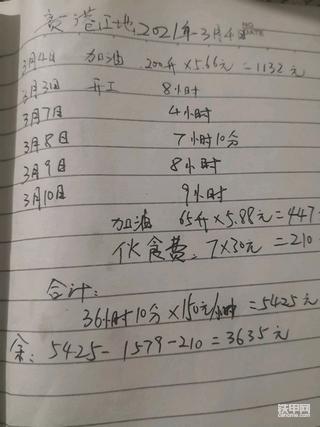 贵港工地,2021年-3月4日
3月4日 加油 200升×5.66元=1132元
3月3日 开工 8小时
3月7日 4小时
3月8日 7小时10分
3月9日 8小时
3月10日 9小时
加油 65升×5.88元=447
伙食费. 7×30元=210
合计:
36小时10分×150元/小时=5425元
余: 5425-1579-210=3635元
铁甲网
cehome.com